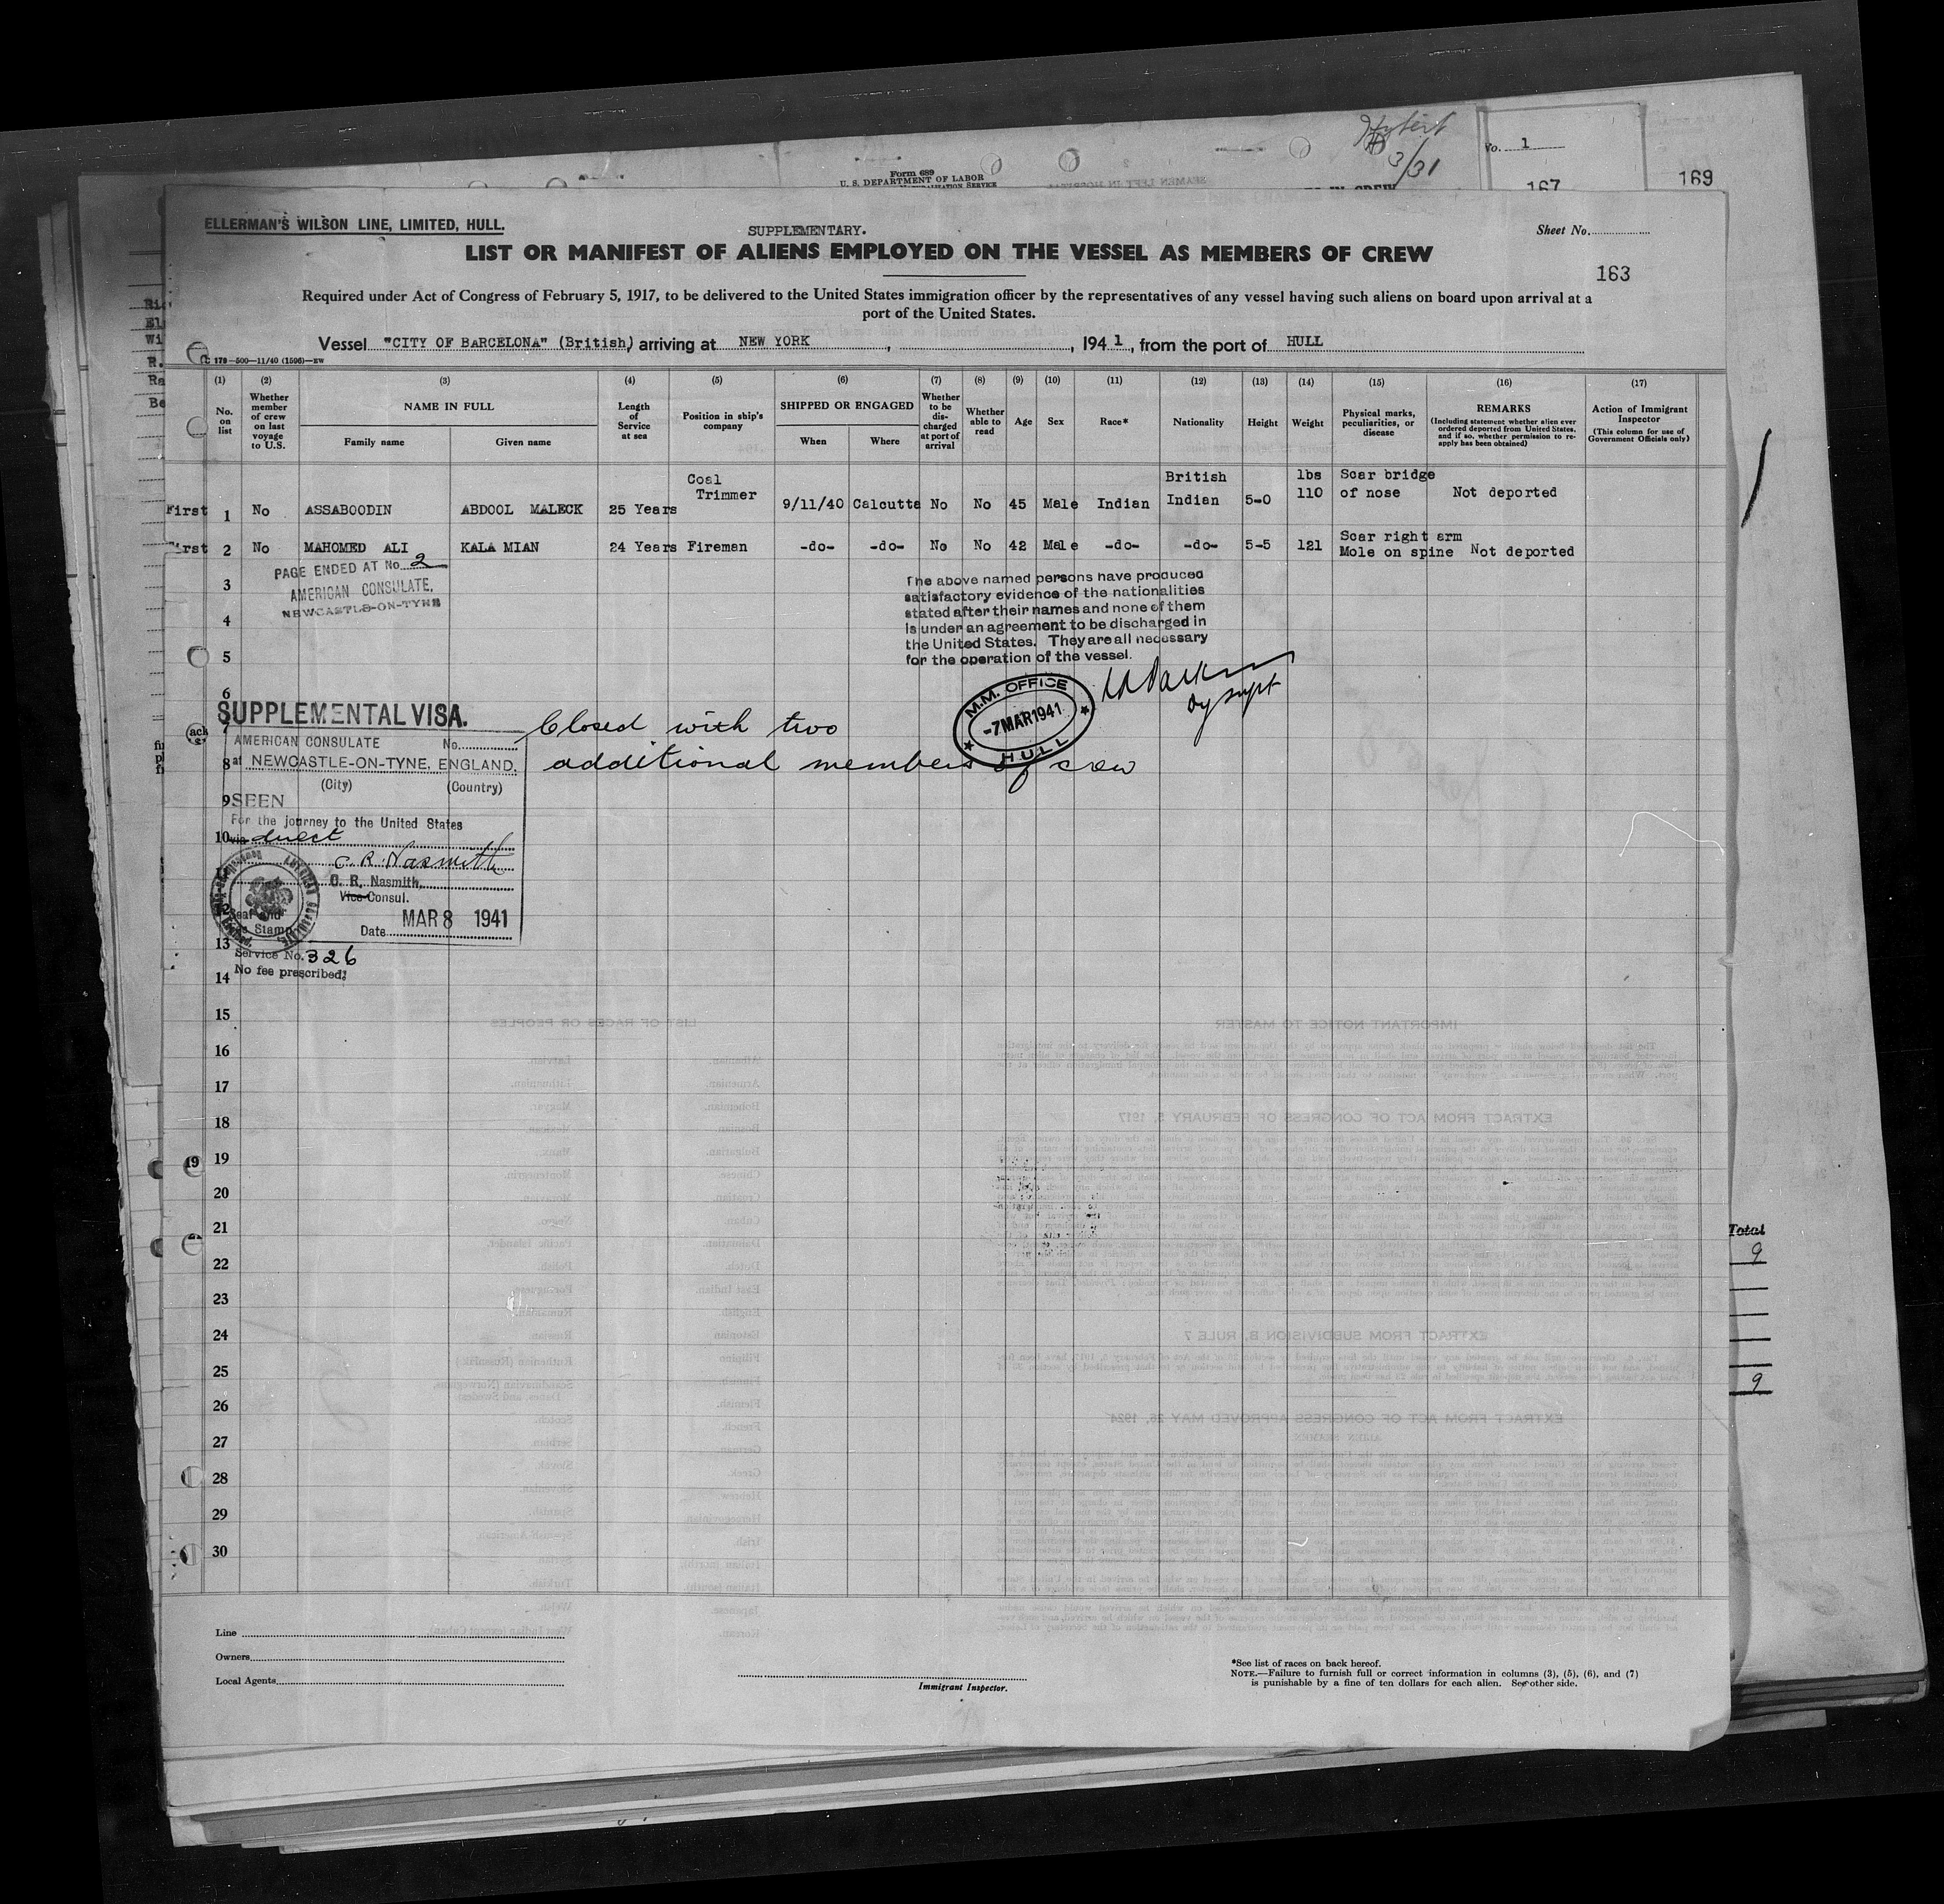 3/31
No. 1
Form 689
U. S. DEPARTMENT OF LABOR
167
169
ELLERMAN'S WILSON LINE, LIMITED, HULL.
SUPPLEMENTARY.
Sheet No.
LIST OR MANIFEST OF ALIENS EMPLOYED ON THE VESSEL AS MEMBERS OF CREW
163
Required under Act of Congress of February 5, 1917, to be delivered to the United States immigration officer by the representatives of any vessel having such aliens on board upon arrival at a
port of the United States.
Vessel "CITY OF BARCELONA" (British) arriving at NEW YORK , , 1941, from the port of HULL
C 179—500—11/40 (1596)—EW
(1) (2) (3) (4) (5) (6) (7) (8) (9) (10) (11) (12) (13) (14) (15) (16) (17)
No. on list
Whether member of crew on last voyage to U.S.
NAME IN FULL
Family name
Given name
Length of Service at sea
Position in ship's company
SHIPPED OR ENGAGED
When
Where
Whether to be discharged at port of arrival
Whether able to read
Age
Sex
Race*
Nationality
Height
Weight
Physical marks, peculiarities, or disease
REMARKS
(Including statement whether alien ever ordered deported from United States, and if so, whether permission to re-apply has been obtained)
Action of Immigrant Inspector
(This column for use of Government Officials only)
First 1 No ASSABOODIN ABDOOL MALECK 25 Years Coal Trimmer 9/11/40 Calcutta No No 45 Male Indian British Indian 5-0 lbs 110 Scar bridge of nose Not deported
First 2 No MAHOMED ALI KALA MIAN 24 Years Fireman -do- -do- No No 42 Male -do- -do- 5-5 121 Scar right arm Mole on spine Not deported
PAGE ENDED AT No. 2
AMERICAN CONSULATE,
NEWCASTLE-ON-TYNE
The above named persons have produced
satisfactory evidence of the nationalities
stated after their names and none of them
is under an agreement to be discharged in
the United States. They are all necessary
for the operation of the vessel.
M.M. OFFICE
-7 MAR 1941
HULL
3
4
5
6
7
8
9
10
11
12
13
14
15
16
17
18
19
20
21
22
23
24
25
26
27
28
29
30
SUPPLEMENTAL VISA.
Closed with two
additional members of crew
AMERICAN CONSULATE No.
at NEWCASTLE-ON-TYNE, ENGLAND.
(City) (Country)
SEEN
For the journey to the United States
via direct
C. R. Nasmith
C. R. Nasmith,
Vice Consul.
Seal and
Fee Stamp
Date MAR 8 1941
Service No. 326
No fee prescribed
Total
9
9
Line
Owners
Local Agents
Immigrant Inspector.
*See list of races on back hereof.
NOTE.—Failure to furnish full or correct information in columns (3), (5), (6), and (7)
is punishable by a fine of ten dollars for each alien. See other side.